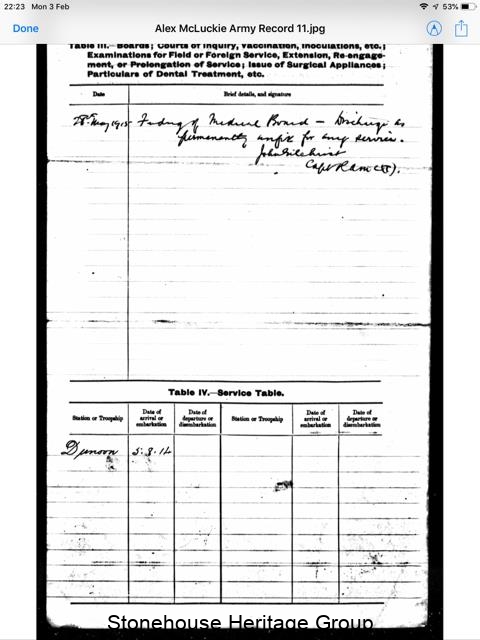 22:23 Mon 3 Feb
53%
Done
Alex McLuckie Army Record 11.jpg
Table III.—Boards; Courts of Inquiry, Vaccination, Inoculations, etc.;
Examinations for Field or Foreign Service, Extension, Re-engage-
ment, or Prolongation of Service; Issue of Surgical Appliances;
Particulars of Dental Treatment, etc.
Date
Brief details, and signature
28th May 1915 Finding of Medical Board — Discharge as
permanently unfit for any service.
John Gilchrist
Capt RAMC (T).
Table IV.—Service Table.
Station or Troopship
Date of arrival or embarkation
Date of departure or disembarkation
Station or Troopship
Date of arrival or embarkation
Date of departure or disembarkation
Dunoon 5.8.14
Stonehouse Heritage Group